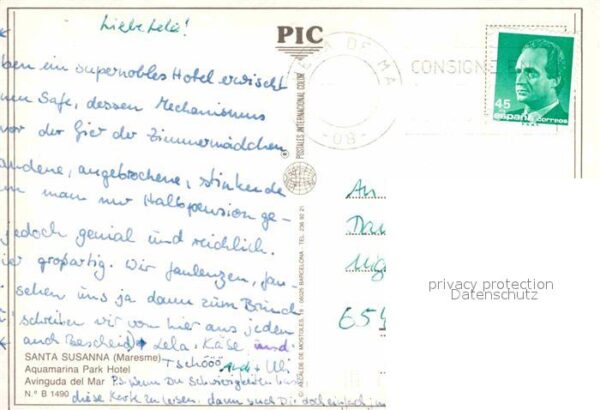 Liebe Lela!
PIC
ben ein supernobles Hotel erwischt
nen Safe, dessen Mechanismus
vor der Gier der Zimmermädchen
andene, angebrochene, stinkende
man nur Halbpension ge-
jedoch genial und reichlich.
großartig. Wir faulenzen,
sehen uns ja dann zum Brunch
schreiben wir von hier aus jeden
auch Bescheid) Lela, Käse und
Tschööö Andi + Uli
P.S. Wenn Du Schwierigkeiten hast
diese Karte zu lesen, dann such Dir doch einfach
SANTA SUSANNA (Maresme)
Aquamarina Park Hotel
Avinguda del Mar
N.º B 1490
POSTALES INTERNATIONAL COLOR
DE MA
CONSIGNE E
45
españa correos
An
privacy protection
Datenschutz
654